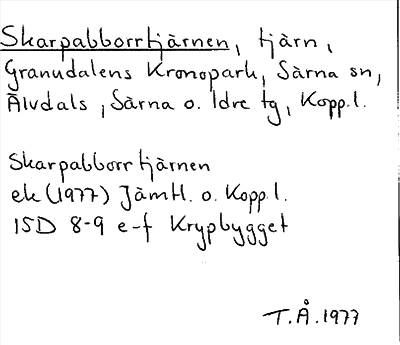 Skarpabborrtjärnen, tjärn,
Granudalens Kronopark, Särna sn,
Älvdals, Särna o. Idre tg, Kopp.l.
Skarpabborrtjärnen
ek (1977) Jämtl. o. Kopp.l.
15D 8-9 e-f Krypbygget
T.Å. 1977